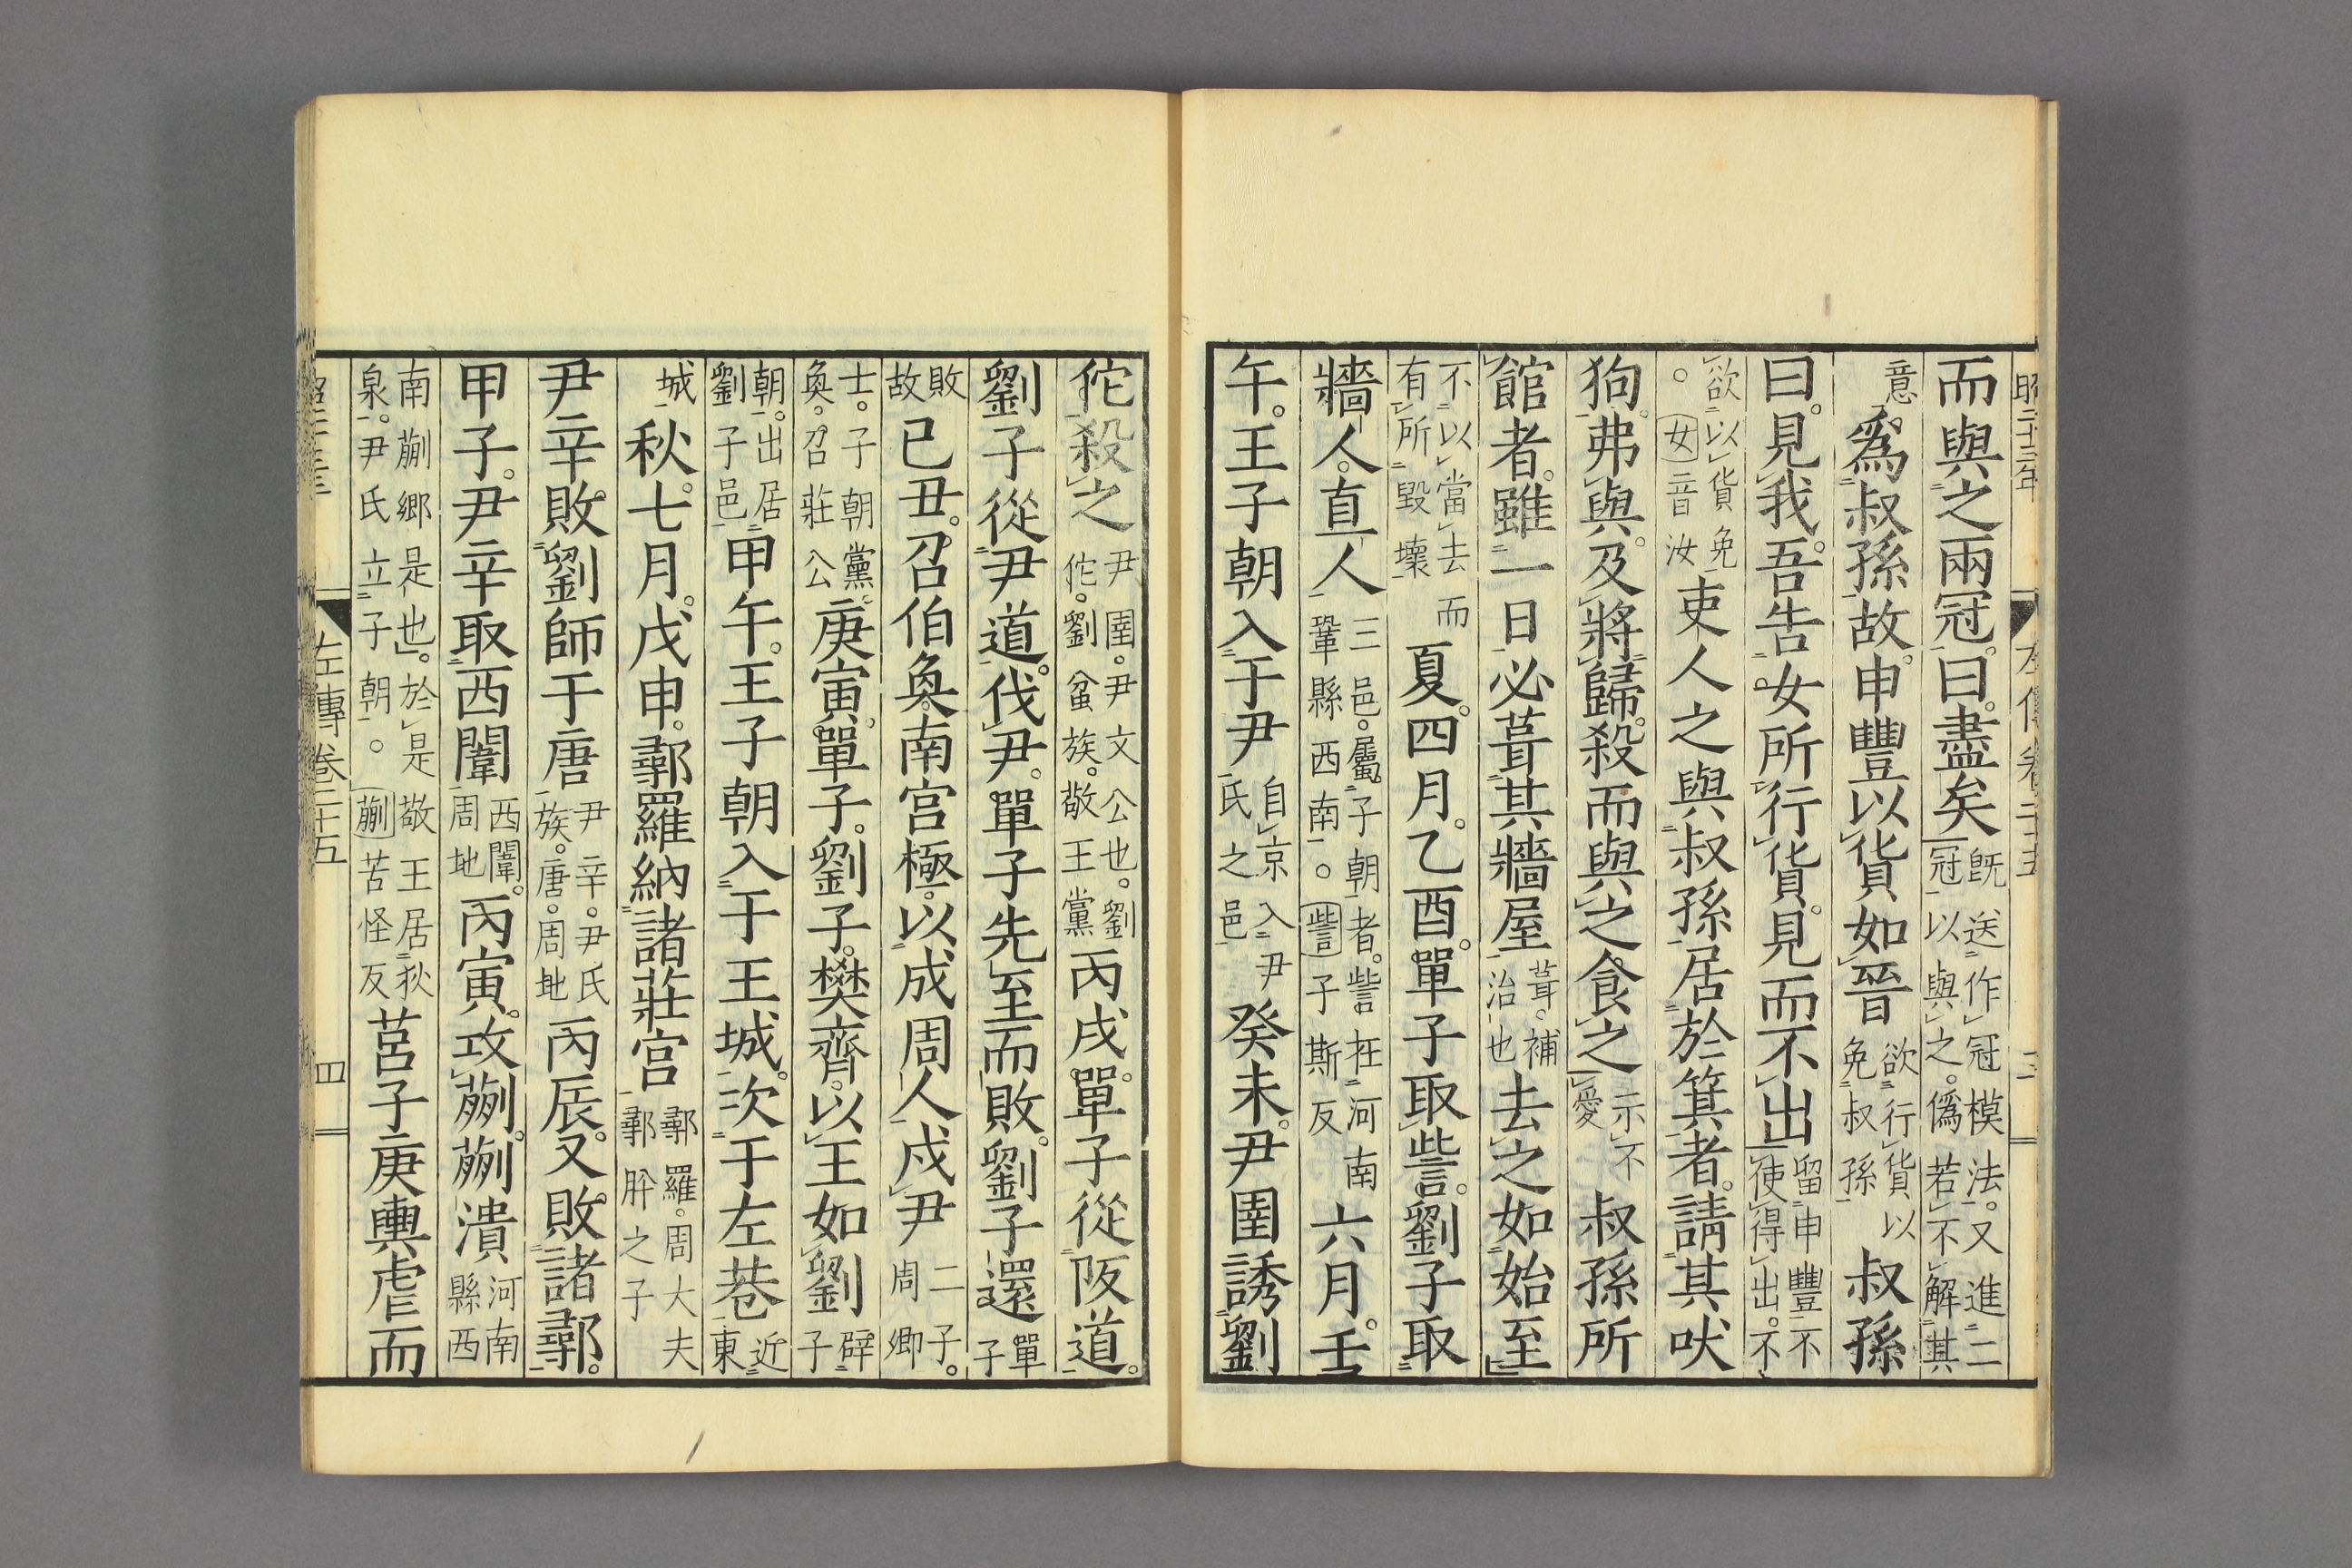 昭二十三年　左傳卷二十五　三
而與之兩冠。曰。盡矣既送作冠模法。又進二冠以與之。僞若不解其
意。爲叔孫故。申豐以貨如晉欲行貨以免叔孫叔孫
曰。見我。吾告女所行貨。見而不出留申豐不使得出。不
欲以貨免。女音汝吏人之與叔孫居於箕者。請其吠
狗。弗與。及將歸。殺而與之食之示不愛叔孫所
館者。雖一日必葺其牆屋葺。補治也去之如始至
不以當去而有所毀壞夏。四月。乙酉。單子取訾。劉子取
牆人。直人三邑。屬子朝者。訾在河南鞏縣西南。訾子斯反六月。壬
午。王子朝入于尹自京入尹氏之邑癸未。尹圉誘劉
佗殺之尹圉。尹文公也。劉佗。劉蚠族。敬王黨丙戌。單子從阪道。
劉子從尹道。伐尹。單子先至而敗。劉子還單子
敗故己丑。召伯奐。南宮極。以成周人戍尹二子。周卿
士。子朝黨。奐。召莊公庚寅。單子。劉子。樊齊。以王如劉辟子
朝。出居劉子邑甲午。王子朝入于王城。次于左巷近東
城秋。七月。戊申。鄩羅納諸莊宮鄩羅。周大夫鄩肸之子
尹辛敗劉師于唐尹辛。尹氏族。唐。周地丙辰。又敗諸鄩。
甲子。尹辛取西闈西闈。周地丙寅。攻蒯。蒯潰河南縣西
南蒯鄉是也。於是敬王居狄泉。尹氏立子朝。蒯苦怪反莒子庚輿虐而
左傳卷二十五　四